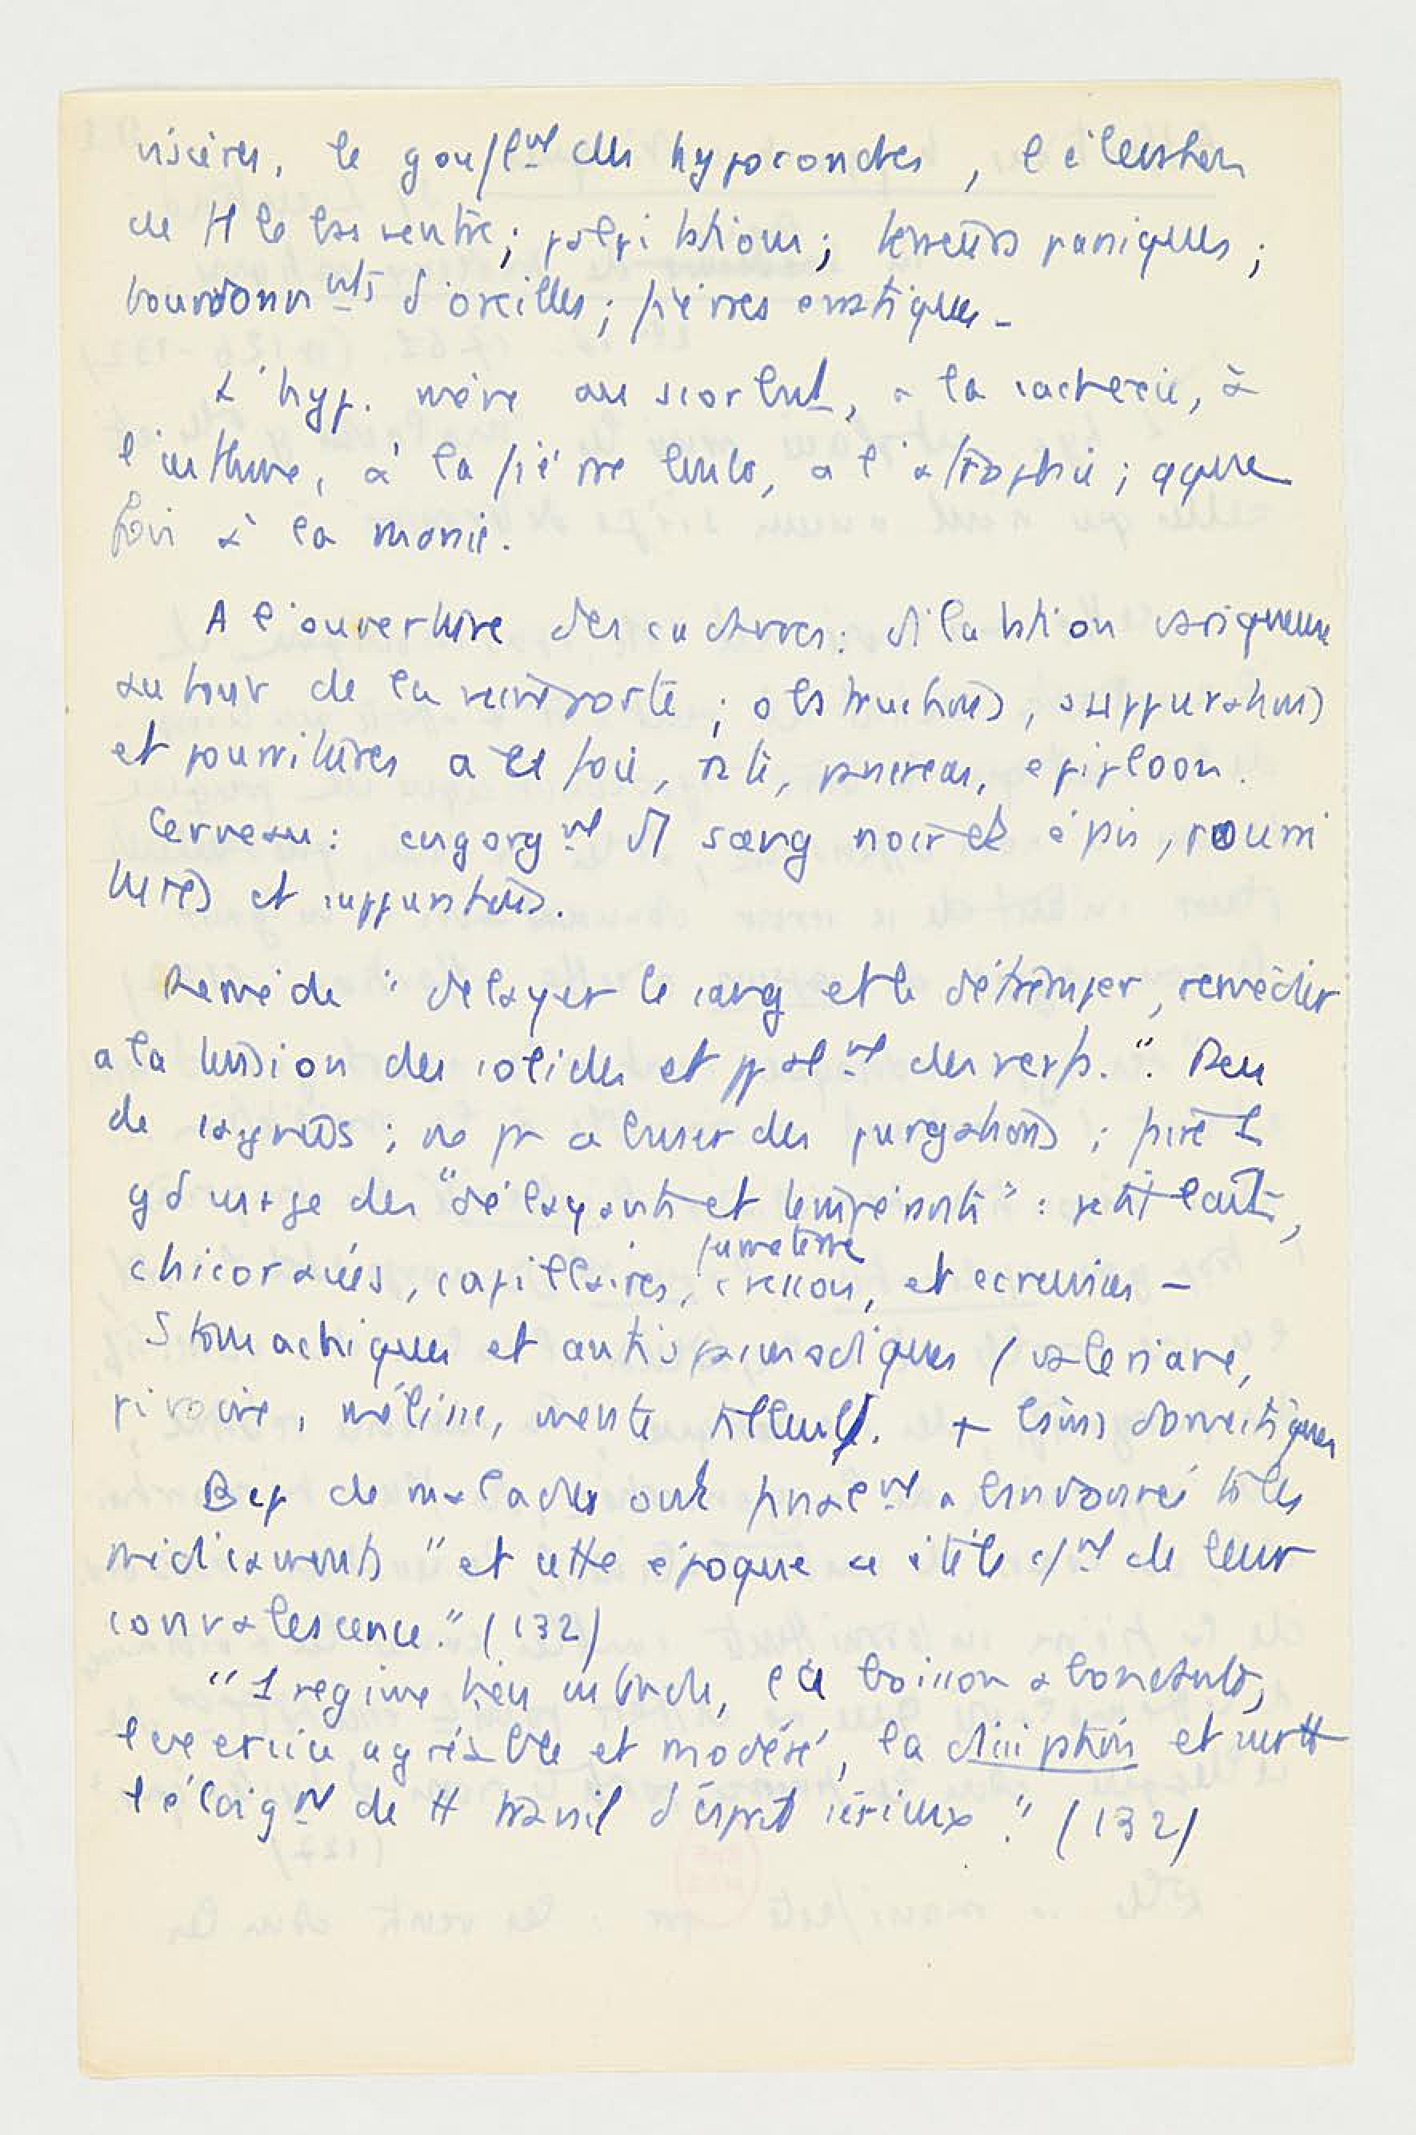 viscères, le gonfl^mt des hypocondres, l'élévation
de tt le bas ventre ; palpitations ; terreurs paniques ;
bourdonn^mts d'oreilles ; fièvres erratiques -
L'hyp. mène au scorbut, à la cachexie, à
l'asthme, à la fièvre lente, à l'atrophie ; qque
fois à la manie.
A l'ouverture des cadavres : dilatation variqueuse
autour de la veine porte ; obstructions, suppurations
et pourritures à la foie, rate, pancréas, epiploon.
Cerveau : engorg^mt de sang noir et épais, pourri
tures et suppurations.
Remède " delayer le sang et le détremper, remédier
a la tension des solides et ppal^mt des nerfs.". Peu
de saignées ; ne pas abuser des purgations ; faire 1
gd usage des "délayants et tempérants" : petit lait,
chicoracées, capillaires, fumeterre cresson, et ecrevisses -
Stomachiques et antispasmodiques (valeriane,
pivoine, mélisse, mente tilleul). + bains domestiques
Bcp de malades ont final^mt abandonné ts les
médicaments "et cette époque a été le c^mt de leur
convalescence." (132)
"1 regime bien entendu, la boisson abondante,
l'exercice agréable et modéré, la dissipation et surtt
l'éloign^t de tt travail d'esprit sérieux." (132)